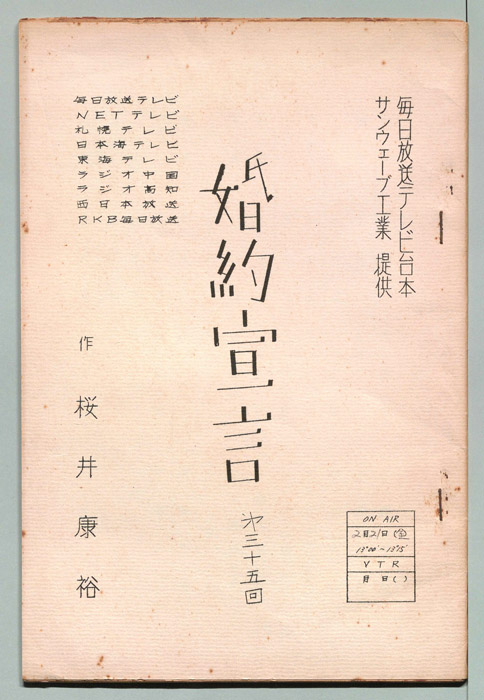 毎日放送テレビ台本
サンウェーブ工業 提供
婚約宣言
第三十五回
毎日放送テレビ
NETテレビ
札幌テレビ
日本海テレビ
東海テレビ
ラジオ中国
ラジオ高知
西日本放送
RKB毎日放送
作 桜井康裕
ON AIR
2月21日(金)
13°00'~13°15'
VTR
月 日( )